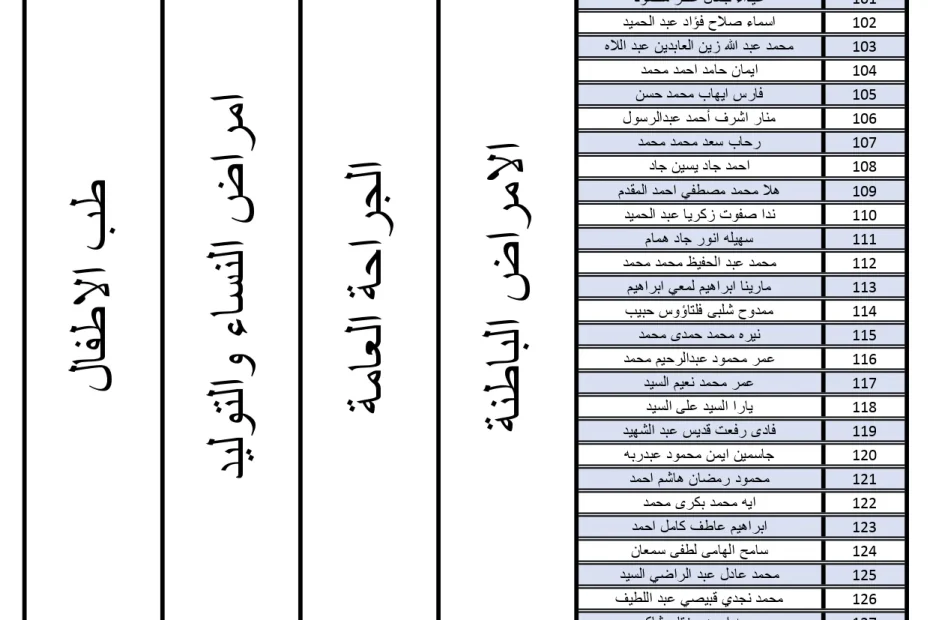 101
102 اسماء صلاح فؤاد عبد الحميد
103 محمد عبد الله زين العابدين عبد اللاه
104 ايمان حامد احمد محمد
105 فارس ايهاب محمد حسن
106 منار اشرف أحمد عبدالرسول
107 رحاب سعد محمد محمد
108 احمد جاد يسين جاد
109 هلا محمد مصطفي احمد المقدم
110 ندا صفوت زكريا عبد الحميد
111 سهيله انور جاد همام
112 محمد عبد الحفيظ محمد محمد
113 مارينا ابراهيم لمعي ابراهيم
114 ممدوح شلبى فلتاؤوس حبيب
115 نيره محمد حمدى محمد
116 عمر محمود عبدالرحيم محمد
117 عمر محمد نعيم السيد
118 يارا السيد على السيد
119 فادى رفعت قديس عبد الشهيد
120 جاسمين ايمن محمود عبدربه
121 محمود رمضان هاشم احمد
122 ايه محمد بكرى محمد
123 ابراهيم عاطف كامل احمد
124 سامح الهامى لطفى سمعان
125 محمد عادل عبد الراضي السيد
126 محمد نجدي قبيصي عبد اللطيف
127
الامراض الباطنة
الجراحة العامة
امراض النساء والتوليد
طب الاطفال